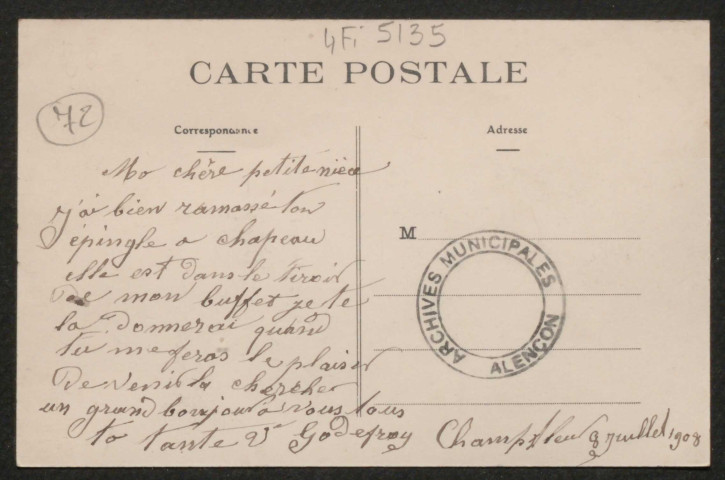 4Fi 5135
CARTE POSTALE
72
Correspondance
Adresse
Ma chère petite nièce
j'ai bien ramassé ton
épingle a chapeau
elle est dans le tiroir
de mon buffet je te
la donnerai quand
tu me feras le plaisir
de venir la chercher
un grand bonjour a vous tous
ta tante Vᵉ Godefroy
Champfleur 8 juillet 1908
M
ARCHIVES MUNICIPALES
ALENÇON